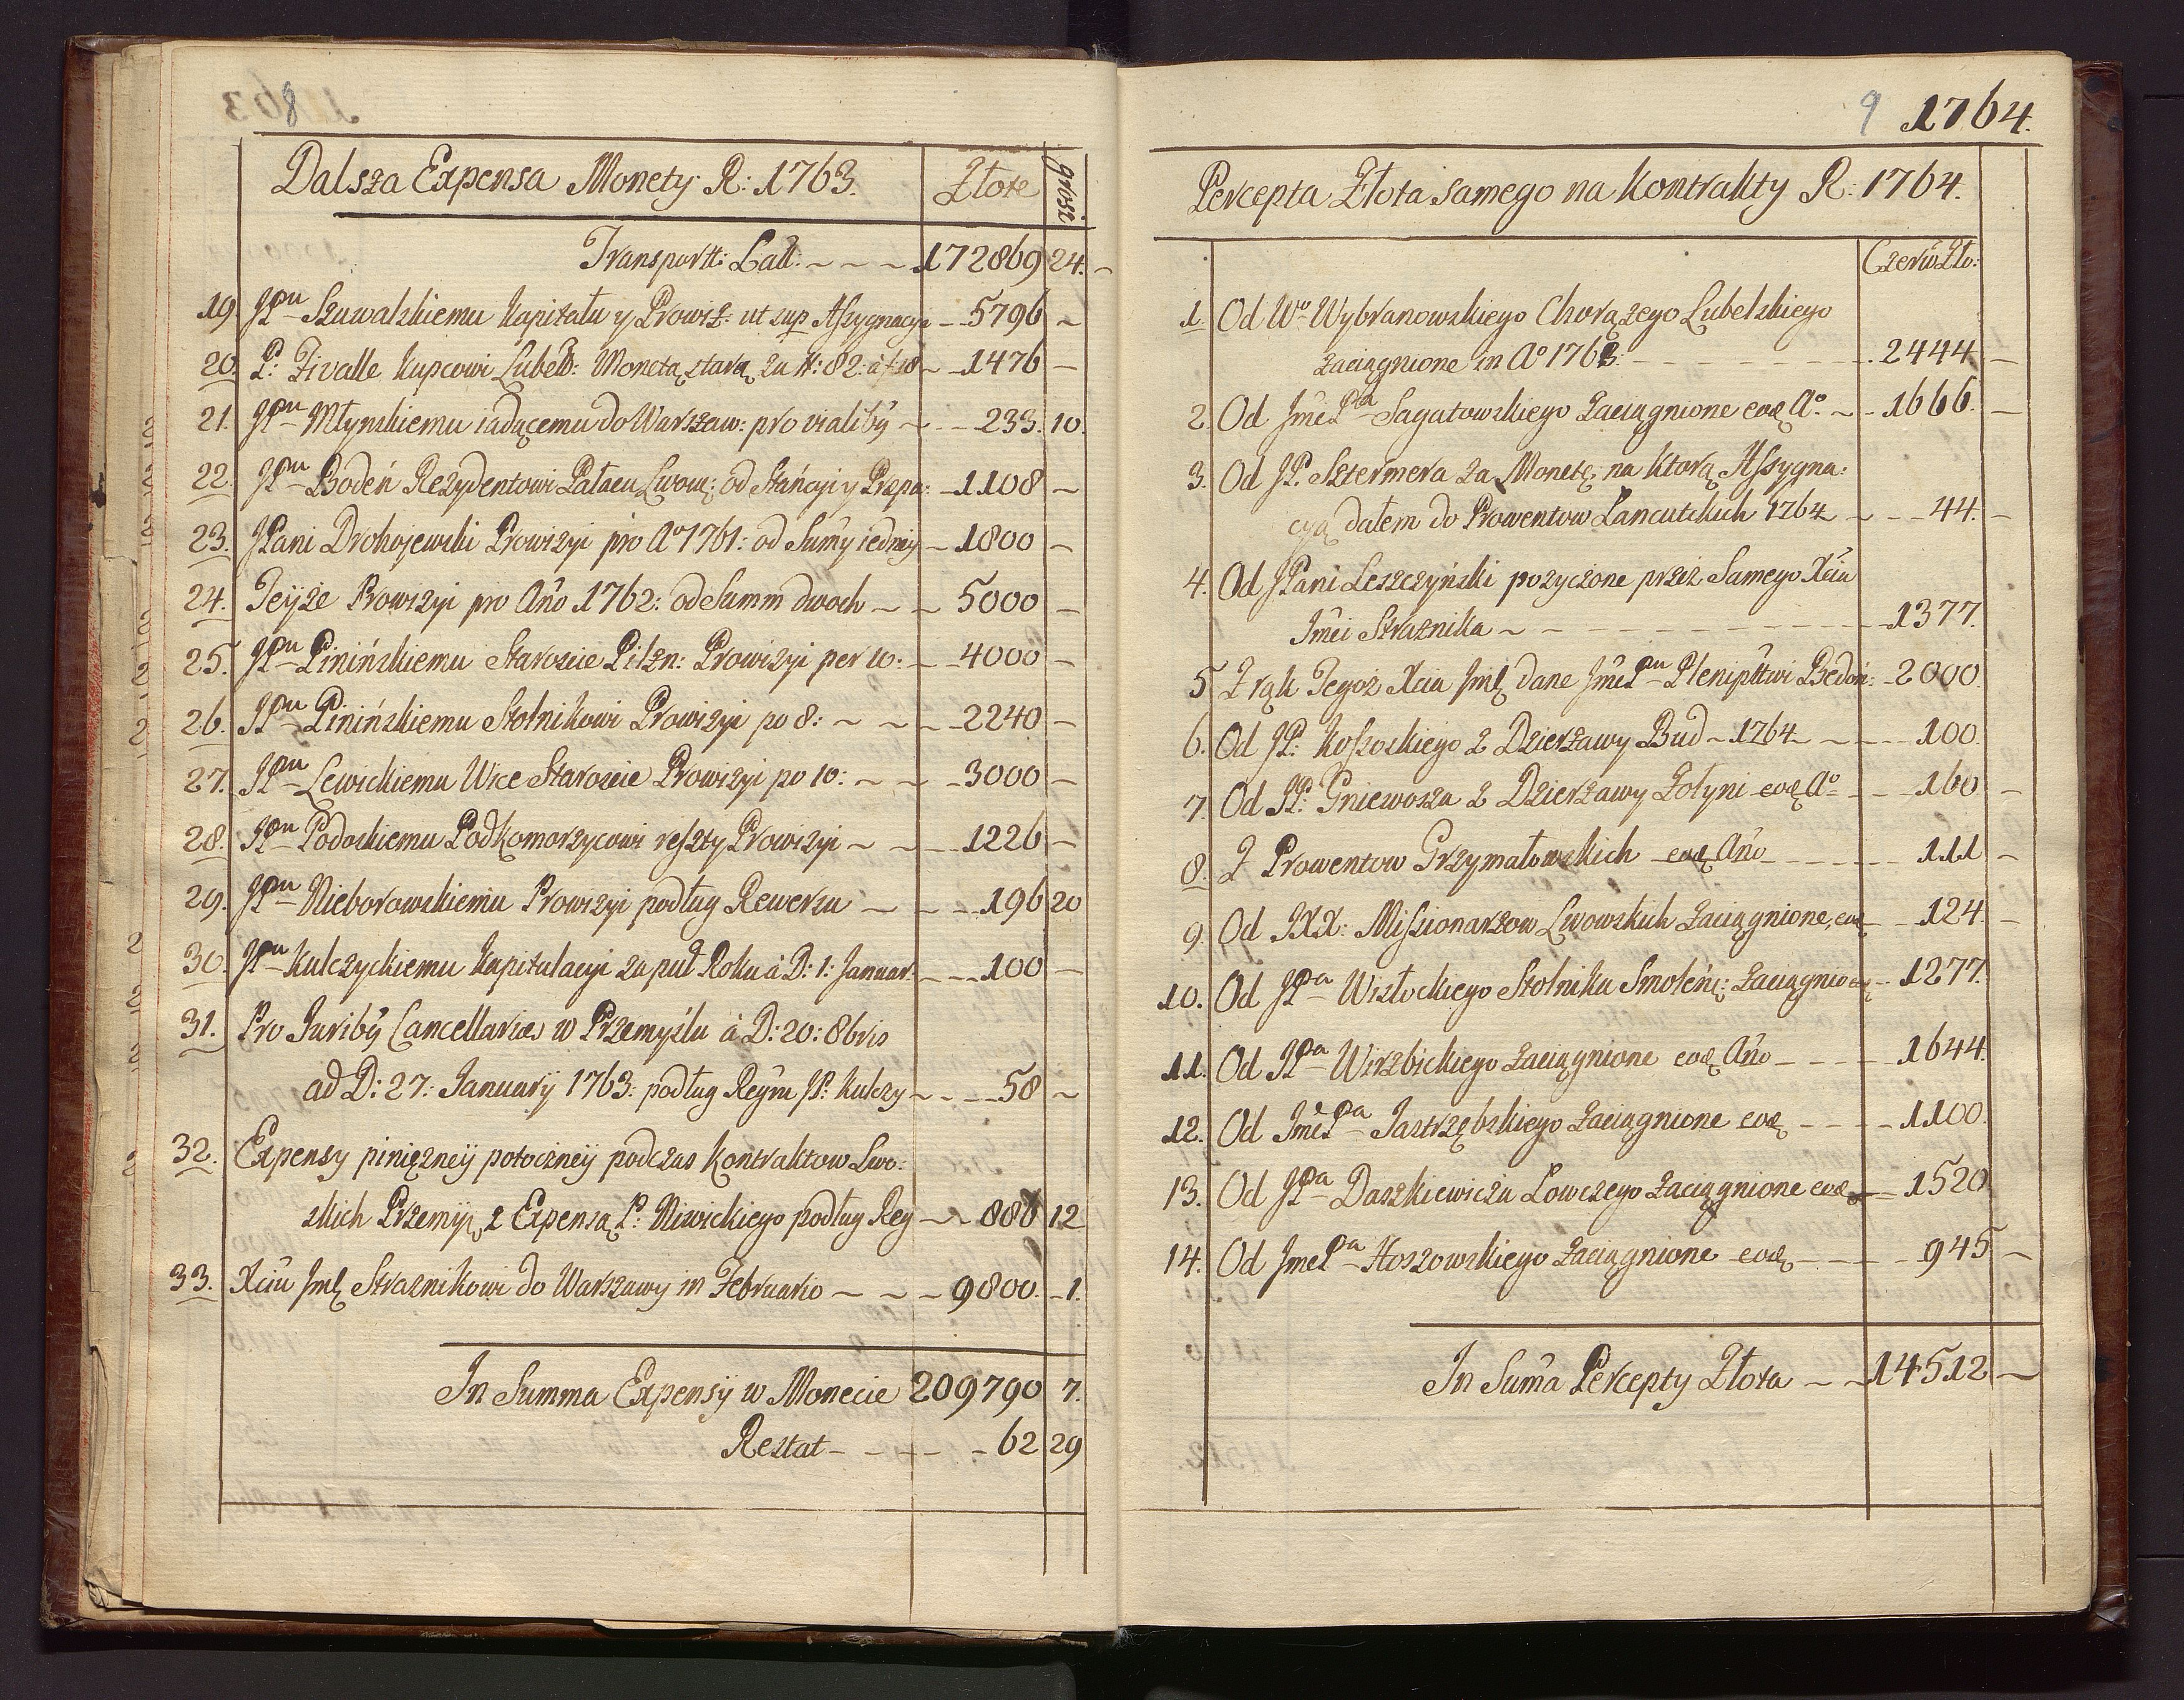 8
Dalsza Expensa Monety R: 1763. Złote grosz
Transportt: Latt: 172869 24.
19. JPnu Szuwalskiemu Kapitału y Prowiz: ut sup Assygnacya 5796
20. P: Fivalle Kupcowi Lubel: Monetą starą za #: 82: à f 18 1476
21. JPnu Młynskiemu iadącemu do Warszaw: pro vialibq 233. 10.
22. JPnu Bodeń Rezydentowi Pałacu Lwow: od Stańcyi y Przpa: 1108
23. JPani Drohojewski Prowizyi pro Ao 1761: od Sumy iedney 1800
24. Teyże Prowizyi pro Ano 1762: od Summ dwoch 5000
25. JPnu Pinińskiemu Staroscie Pilzn: Prowizyi per 10: 4000
26. JPnu Pinińskiemu Stolnikowi Prowizyi po 8: 2240
27. JPnu Lewickiemu Wice Staroscie Prowizyi po 10: 3000
28. JPnu Podoskiemu Podkomorzycowi reszty Prowizyi 1226
29. JPnu Nieborowskiemu Prowizyi podług Rewersu 196 20
30. JPnu Kulczyckiemu Kapitulacyi za puł Roku à D: 1: Januar. 100
31. Pro Juribq Cancellariæ w Przemyślu à D: 20: 8bris
ad D: 27: Januarÿ 1763: podług Reÿm JP: Kulczy 58
32. Expensy pinięzneÿ potoczneÿ podczas Kontraktow Lwo:
skich Przemyś, z Expensą P: Niwickiego podług Rey 888 12
33. Xciu Jmę Straznikowi do Warszawy in Februario 9800. 1.
In Summa Expensÿ w Monecie 209790 7.
Restat 62 29
9 1764.
Percepta Złota samego na Kontrakty R: 1764.
Czerw Zło:
1. Od Wo Wybranowskiego Chorązego Lubelskiego
zaciągnione in Ao 1763: 2444
2. Od JmciPa Sagatowskiego zaciągnione eod Ao 1666.
3. Od JP. Sztermera za Monetę na ktorą Assygna:
cyą dałem do Prowentow Lancutskich 1764 44.
4. Od JPani Leszczyński pozyczone przez Samego Xcia
Jmci Straznika 1377.
5 Z rąk Tegoż Xcia Jmę dane JmcPnu Plenipttwi Bedoń: 2000
6. Od JP: Kossoskiego z Dzierżawy Bud 1764 100
7. Od JP: Gniewosza z Dzierżawy Żołyni eod Ao 160
8. Z Prowentow Grzymałowskich eod Ano 111
9. Od JXX: Missionarzow Lwowskich zaciągnione, eod 124.
10. Od JPa Wisłockiego Stolnika Smoleń: zaciągnio eod 1277.
11. Od JPa Wirzbickiego zaciągnione eod Ano 1644.
12. Od JmcPa Jastrzębskiego zaciągnione eod 1100.
13. Od JPa Daszkiewicza Lowczego zaciągnione eod 1520
14. Od JmcPa Hoszowskiego zaciągnione eod 945
In Suma Percepty Złota 14512